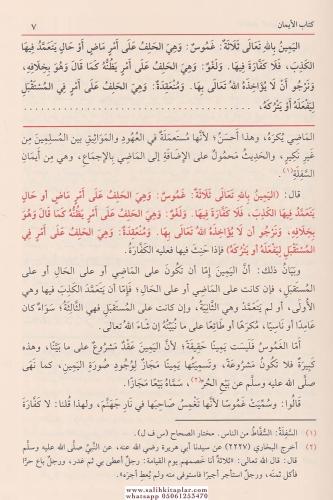 كتاب الأيمان
٧
اليَمِينُ بِاللهِ تَعَالَى ثَلَاثَةٌ: غَمُوسٌ: وَهِيَ الحَلِفُ عَلَى أَمْرٍ مَاضٍ أَوْ حَالٍ يَتَعَمَّدُ فِيهَا
الكَذِبَ، فَلَا كَفَّارَةَ فِيهَا. وَلَغْوٌ: وَهِيَ الحَلِفُ عَلَى أَمْرٍ يَظُنُّهُ كَمَا قَالَ وَهُوَ بِخِلَافِهِ،
وَنَرْجُو أَنْ لَا يُؤَاخِذَهُ اللهُ تَعَالَى بِهَا. وَمُنْعَقِدَةٌ: وَهِيَ الحَلِفُ عَلَى أَمْرٍ فِي المُسْتَقْبَلِ
لِيَفْعَلَهُ أَوْ يَتْرُكَهُ،
المَاضِي يُكْرَهُ، وهذا أحسَنُ؛ لأنها مُستعمَلةٌ في العُهُودِ والمَوَاثِيقِ بين المسلِمِينَ مِن
غَيرِ نَكيرٍ، والحَدِيثُ مَحمُولٌ على الإضَافَةِ إلى المَاضِي بالإجماعِ، وهي مِن أيمَانِ
السَّفِلَةِ(١).
قال: (اليَمِينُ بِاللهِ تَعَالَى ثَلَاثَةٌ: غَمُوسٌ: وَهِيَ الحَلِفُ عَلَى أَمْرٍ مَاضٍ أو حَالٍ
يَتَعَمَّدُ فِيهَا الكَذِبَ، فَلَا كَفَّارَةَ فِيهَا. وَلَغْوٌ: وَهِيَ الحَلِفُ عَلَى أَمْرٍ يَظُنُّهُ كَمَا قَالَ وَهُوَ
بِخِلَافِهِ، وَنَرْجُو أن لَا يُؤَاخِذَهُ اللهُ تَعَالَى بِهَا. وَمُنْعَقِدَةٌ: وَهِيَ الحَلِفُ عَلَى أَمْرٍ فِي
المُسْتَقْبَلِ لِيَفْعَلَهُ أو يَتْرُكَهُ) فإذا حَنِثَ فيها فعليه الكفَّارَةُ.
وبَيَانُ ذلك: أنَّ اليَمِينَ إمَّا أن تكُونَ على المَاضِي أو على الحَالِ أو على
المُستقبَلِ، فإن كانت على المَاضِي أو على الحَالِ؛ فإمَّا أن يَتعمَّدَ الكَذِبَ فيها وهي
الأُولَى، أو لم يَتعمَّدْ وهي الثَّانِيةُ، وإن كانت على المُستقبَلِ فهي الثَّالِثةُ؛ سَوَاءٌ كان
عامِدًا أو نَاسِيًا، مُكرَهًا أو طَائِعًا على ما نُبَيِّنُهُ إن شاءَ اللهُ تعالى.
أمَّا الغَمُوسُ فلَيسَت يَمِينًا حَقِيقةً؛ لأنَّ اليَمِينَ عَقدٌ مَشرُوعٌ على ما بَيَّنَّا، وهذه
كَبِيرةٌ فلا تكُونُ مَشرُوعَةً، وتَسمِيتُها يَمِينًا مَجَازًا لوُجُودِ صُورَةِ اليَمِينِ، كما نَهَى
صلى الله عليه وسلَّم عن بَيعِ الحُرِّ(٢)، سَمَّاهُ بَيعًا مَجَازًا.
قالُوا: وسُمِّيَت غَمُوسًا؛ لأنَّها تَغمِسُ صَاحِبَها في نارِ جَهنَّمَ، ولهذا قُلنا: لا كفَّارَةَ
(١) السَّفِلَةُ: السُّقَّاطُ من الناس. مختار الصحاح (س ف ل).
(٢) أخرج البخاري (٢٢٢٧) عن سيدنا أبي هريرة رضي الله عنه، عن النبيِّ صلى الله عليه وسلم
قال: قال الله تعالى: "ثلاثةٌ أنا خصمهم يوم القيامة: رجلٌ أعطى بي ثم غدر، ورجلٌ باع حرًّا
فأكل ثمنه، ورجلٌ استأجر أجيرًا فاستوفى منه ولم يُعطِ أجرَه".
www.salihkitaplar.com
whatsapp 05061253470